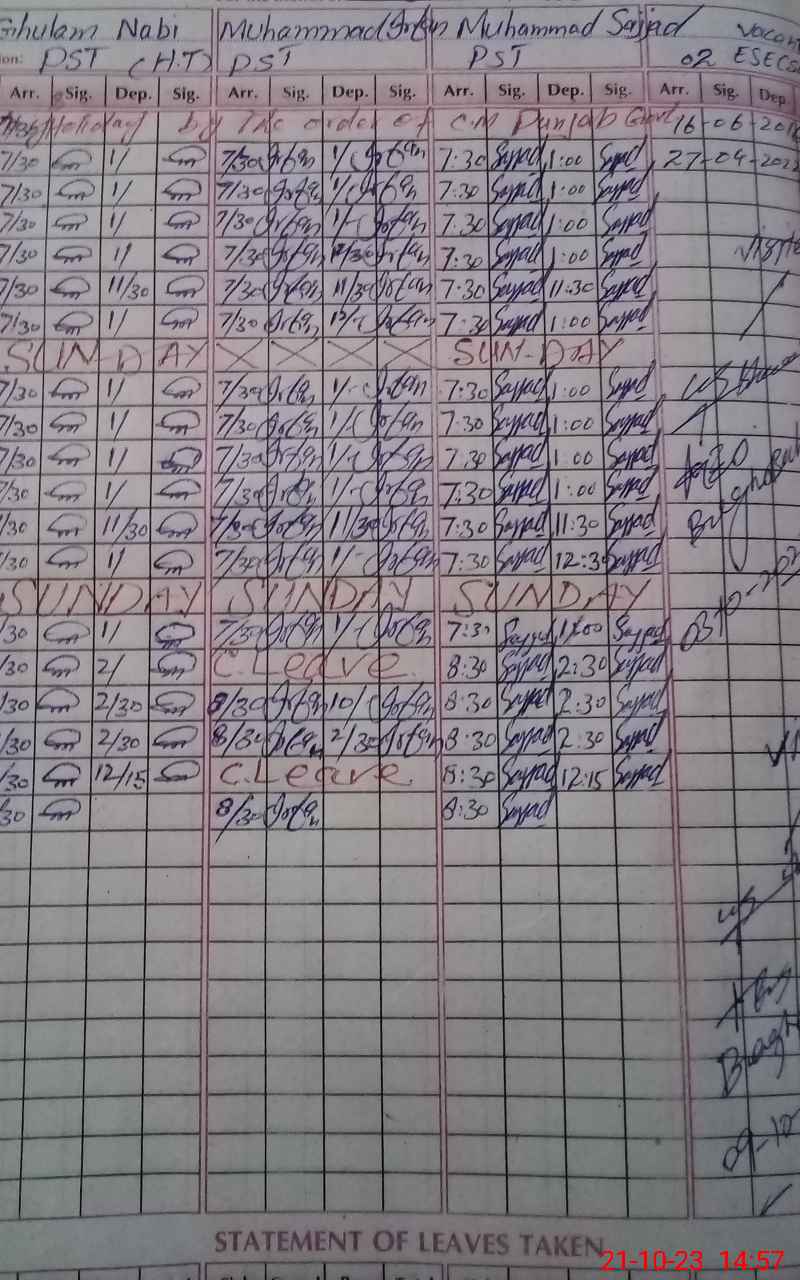 Ghulam Nabi Muhammad Irfan Muhammad Sajjad Vacant
on: PST (H.T) PST PST 02 ESE(S
Arr. Sig. Dep. Sig. Arr. Sig. Dep. Sig. Arr. Sig. Dep. Sig. Arr. Sig. Dep
Holiday by The order of C.M Punjab Govt 16-06-20
7/30 1/ 7/30 Irfan 1/- Irfan 7:30 Sajjad 1:00 Sajjad 27-04-202
7/30 1/ 7/30 Irfan 1/- Irfan 7:30 Sajjad 1:00 Sajjad
7/30 1/ 7/30 Irfan 1/- Irfan 7:30 Sajjad 1:00 Sajjad
7/30 1/ 7/30 Irfan Irfan 7:30 Sajjad 1:00 Sajjad
7/30 11/30 7/30 Irfan 11/30 Irfan 7:30 Sajjad 11:30 Sajjad
7/30 1/ 7/30 Irfan 12/- Irfan 7:30 Sajjad 1:00 Sajjad
SUN-DAY X X X X SUN-DAY
7/30 1/ 7/30 Irfan 1/- Irfan 7:30 Sajjad 1:00 Sajjad
7/30 1/ 7/30 Irfan 1/- Irfan 7:30 Sajjad 1:00 Sajjad
7/30 1/ 7/30 Irfan 1/- Irfan 7:30 Sajjad 1:00 Sajjad
7/30 1/ 7/30 Irfan 1/- Irfan 7:30 Sajjad 1:00 Sajjad
/30 11/30 7/30 Irfan 11/30 Irfan 7:30 Sajjad 11:30 Sajjad
/30 1/ 7/30 Irfan 1/- Irfan 7:30 Sajjad 12:30 Sajjad
SUNDAY SUNDAY SUNDAY
/30 1/ 7/30 Irfan 1/- Irfan 7:30 Sajjad 1:00 Sajjad 03-10-202
/30 2/ C.Leave 8:30 Sajjad 2:30 Sajjad
/30 2/30 8/30 Irfan 10/ Irfan 8:30 Sajjad 2:30 Sajjad
/30 2/30 8/30 Irfan 2/30 Irfan 8:30 Sajjad 2:30 Sajjad
/30 12/15 C.Leave 8:30 Sajjad 12:15 Sajjad
/30 8/30 Irfan 8:30 Sajjad
09-10
STATEMENT OF LEAVES TAKEN
21-10-23 14:57